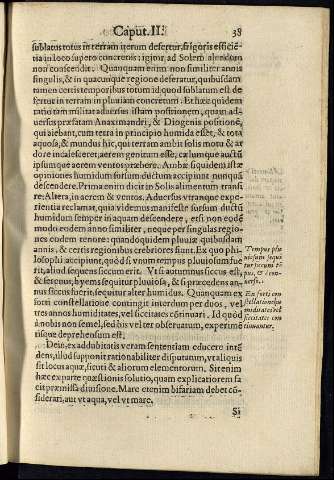 Caput. II. 38
sublatus totus in terram iterum desertur, frigoris efficiē
tia in loco supero concretus: igitur ad Solem alendum
non conscendit. Quanquam enim non similiter annis
singulis, & in quacunque regione deferatur, quibusdam
tamen certis temporibus totum id, quod sublatum est de
fertur in terram in pluuiam concretum. Et hæc quidem
ratio tam militat aduersus istam positionem, quam ad-
uersus præfatam Anaxmandri, & Diogenis positionē,
qui aiebant, cum terra in principio humida esset, & tota
aquosa, & mundus hic, qui terram ambit solis motu & ar
dore incalesceret; aerem genitum esse; cælumque auctū
ipsumque aerem ventos præbere. Ambæ siquidem istæ
opiniones humidum sursum ductum accipiunt nunquā
descendere. Prima enim dicit in Solis alimentum transi
re: Altera, in aerem & ventos. Aduersus vtranque expe
rientia reclamat, quia videmus manifeste sursum ductū
humidum semper in aquam descendere, etsi non eodē
modo eodem anno similiter, neque per singulas regio-
nes eodem tenore: quandoquidem pluuiæ quibusdam
annis, & certis regionibus crebriores sunt. Ex quo phi-
losophi accipiunt, quod si vnum tempus pluuiosum fue
rit, aliud sequens siccum erit. Vt si autumnus siccus est,
& serenus, hyems sequitur pluuiosa, & si præcedens an-
nus siccus fuerit, sequitur alter humidus. Quanquam ex
forti constellatione contingit interdum per duos, vel
tres annos humiditates, vel siccitates cōtinuari. Id quod
à nobis non semel, sed his vel ter obseruatum, experimē
tisque deprehensum est.
Tempus plu
uiosum sequi
tur siccum tē
pus, & è con-
uerso.
Ex forti con
stellatione hu
miditates vel
siccitates con
tinuantur.
Dein, ex addubitatis veram sententiam educere inté
dens, illud supponit rationabiliter disputatum, vtra liquis
sit locus aquæ, sicuti & aliorum elementorum. Sit enim
hæc ex parte quæstionis solutio, quam explicatiorem fa
cit præmissa diuisione. Mare etenim bifariam debet cō-
siderari, aut vt aqua, vel vt mare.
Si